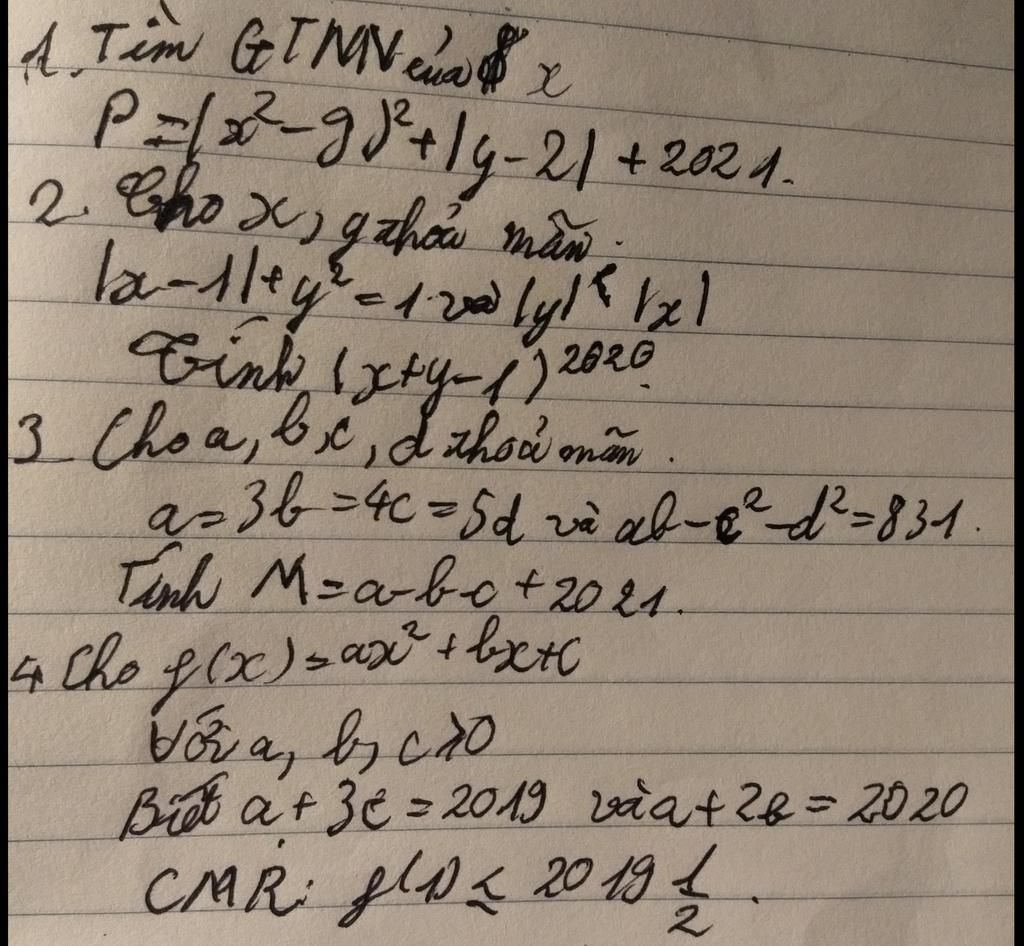 1. Tìm GTNN của x
P = (x² - 9)² + |y - 2| + 2021.
2. Cho x, y thoả mãn.
|x - 1| + y² = 1 và |y| ≤ |x|
Tính (x + y - 1)²⁰²⁰
3 Cho a, b, c, d thoả mãn.
a = 3b = 4c = 5d và ab - c² - d² = 831.
Tính M = a - b - c + 2021.
4 Cho f(x) = ax² + bx + c
Với a, b, c ≥ 0
Biết a + 3c = 2019 và a + 2b = 2020
CMR: f(1) ≤ 2019 1/2.